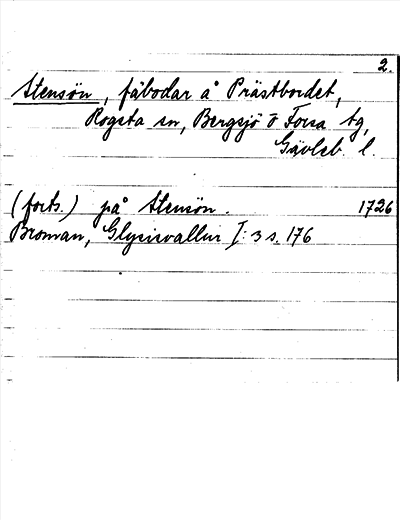 2.
Stensön, fäbodar å Prästbordet,
Rogsta sn, Bergsjö o Forsa tg,
Gävleb. l.
(forts.) på Stensön. 1726
Broman, Glysisvallur I: 3 s. 176